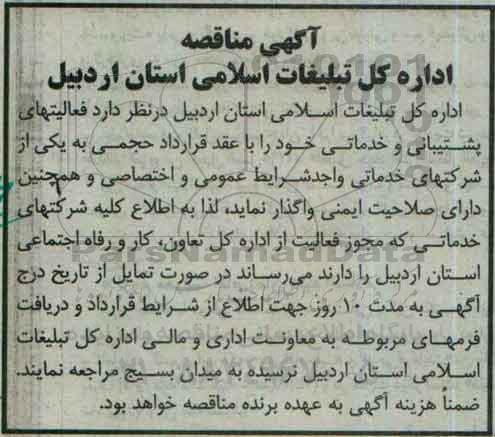 آگهی مناقصه
اداره کل تبلیغات اسلامی استان اردبیل
اداره کل تبلیغات اسلامی استان اردبیل درنظر دارد فعالیتهای
پشتیبانی و خدماتی خود را با عقد قرارداد حجمی به یکی از
شرکتهای خدماتی واجدشرایط عمومی و اختصاصی و همچنین
دارای صلاحیت ایمنی واگذار نماید، لذا به اطلاع کلیه شرکتهای
خدماتی که مجوز فعالیت از اداره کل تعاون، کار و رفاه اجتماعی
استان اردبیل را دارند می‌رساند در صورت تمایل از تاریخ درج
آگهی به مدت ۱۰ روز جهت اطلاع از شرایط قرارداد و دریافت
فرمهای مربوطه به معاونت اداری و مالی اداره کل تبلیغات
اسلامی استان اردبیل نرسیده به میدان بسیج مراجعه نمایند.
ضمناً هزینه آگهی به عهده برنده مناقصه خواهد بود.
ParsNamadData